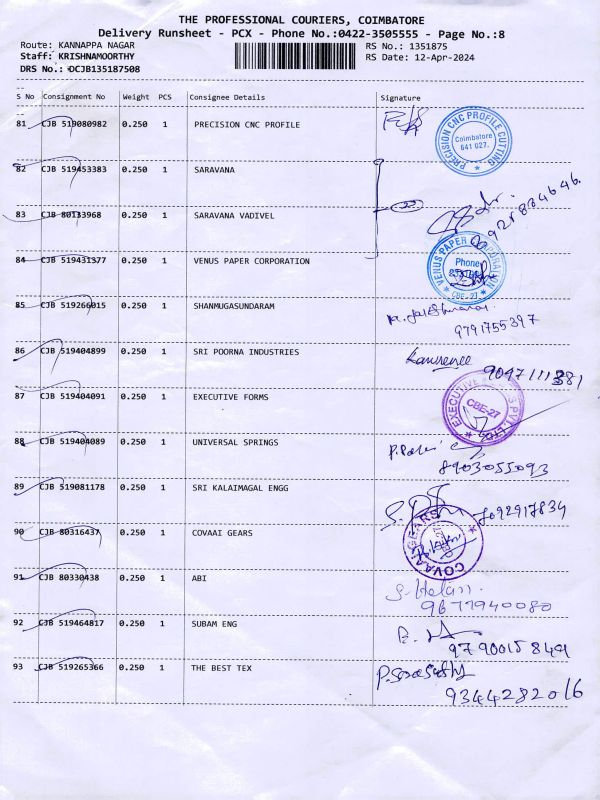 THE PROFESSIONAL COURIERS, COIMBATORE
Delivery Runsheet - PCX - Phone No.:0422-3505555 - Page No.:8
Route: KANNAPPA NAGAR RS No.: 1351875
Staff: KRISHNAMOORTHY RS Date: 12-Apr-2024
DRS No.: DCJB135187508
S No Consignment No Weight PCS Consignee Details Signature
81 CJB 519080982 0.250 1 PRECISION CNC PROFILE
PRECISION CNC PROFILE CUTTING
Coimbatore
641 027.
82 CJB 519453383 0.250 1 SARAVANA
83 CJB 80133968 0.250 1 SARAVANA VADIVEL
84 CJB 519431377 0.250 1 VENUS PAPER CORPORATION
VENUS PAPER CORPORATION
Phone
CBE-27
85 CJB 519266015 0.250 1 SHANMUGASUNDARAM
9791755397
86 CJB 519404899 0.250 1 SRI POORNA INDUSTRIES
87 CJB 519404091 0.250 1 EXECUTIVE FORMS
EXECUTIVE
CBE-27
88 CJB 519404089 0.250 1 UNIVERSAL SPRINGS
8903055093
89 CJB 519081178 0.250 1 SRI KALAIMAGAL ENGG
90 CJB 80316437 0.250 1 COVAAI GEARS
COVAAI GEARS
91 CJB 80330438 0.250 1 ABI
9677940080
92 CJB 519464817 0.250 1 SUBAM ENG
93 CJB 519265366 0.250 1 THE BEST TEX
9344282016